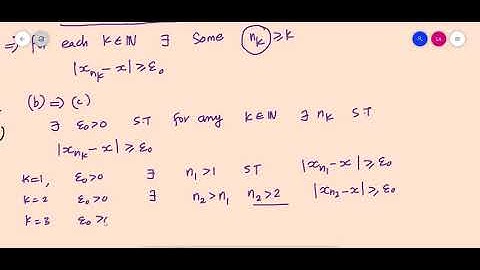 ⇒ for each K ∈ ℕ ∃ some n_k ≥ k
|x_{n_k} − x| ≥ ε₀
(b) ⇒ (c)
∃ ε₀ > 0 S.T for any K ∈ ℕ ∃ n_k S.T
|x_{n_k} − x| ≥ ε₀
K=1, ε₀>0 ∃ n₁ > 1 S.T |x_{n₁} − x| ≥ ε₀
K=2 ε₀>0 ∃ n₂ > n₁ n₂ > 2 |x_{n₂} − x| ≥, ε₀
K=3 ε₀ >